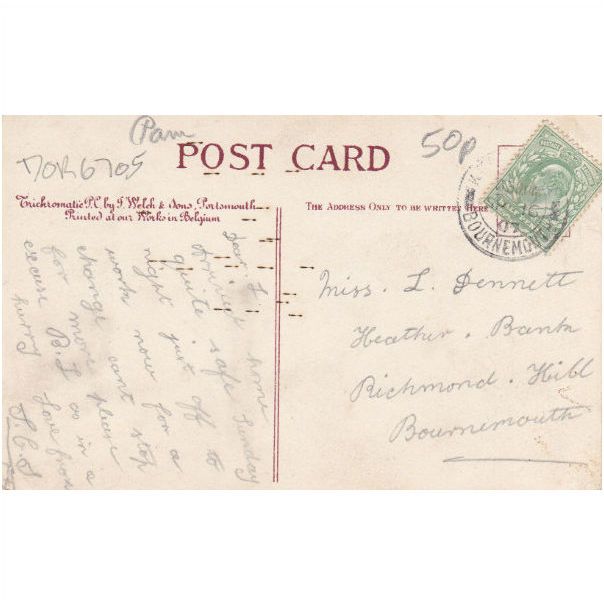 Pam
POST CARD
50p
Trichromatic P.C. by J. Welch & Sons, Portsmouth
Printed at our Works in Belgium
THE ADDRESS ONLY TO BE WRITTEN HERE
BOURNEMOUTH
Dear. L
Arrived home
quite safe Sunday
night just off to
work now for a
change cant stop
for more please
excuse B. L as in a
hurry Love from
Miss. L. Dennett
Heather. Bank
Richmond. Hill
Bournemouth